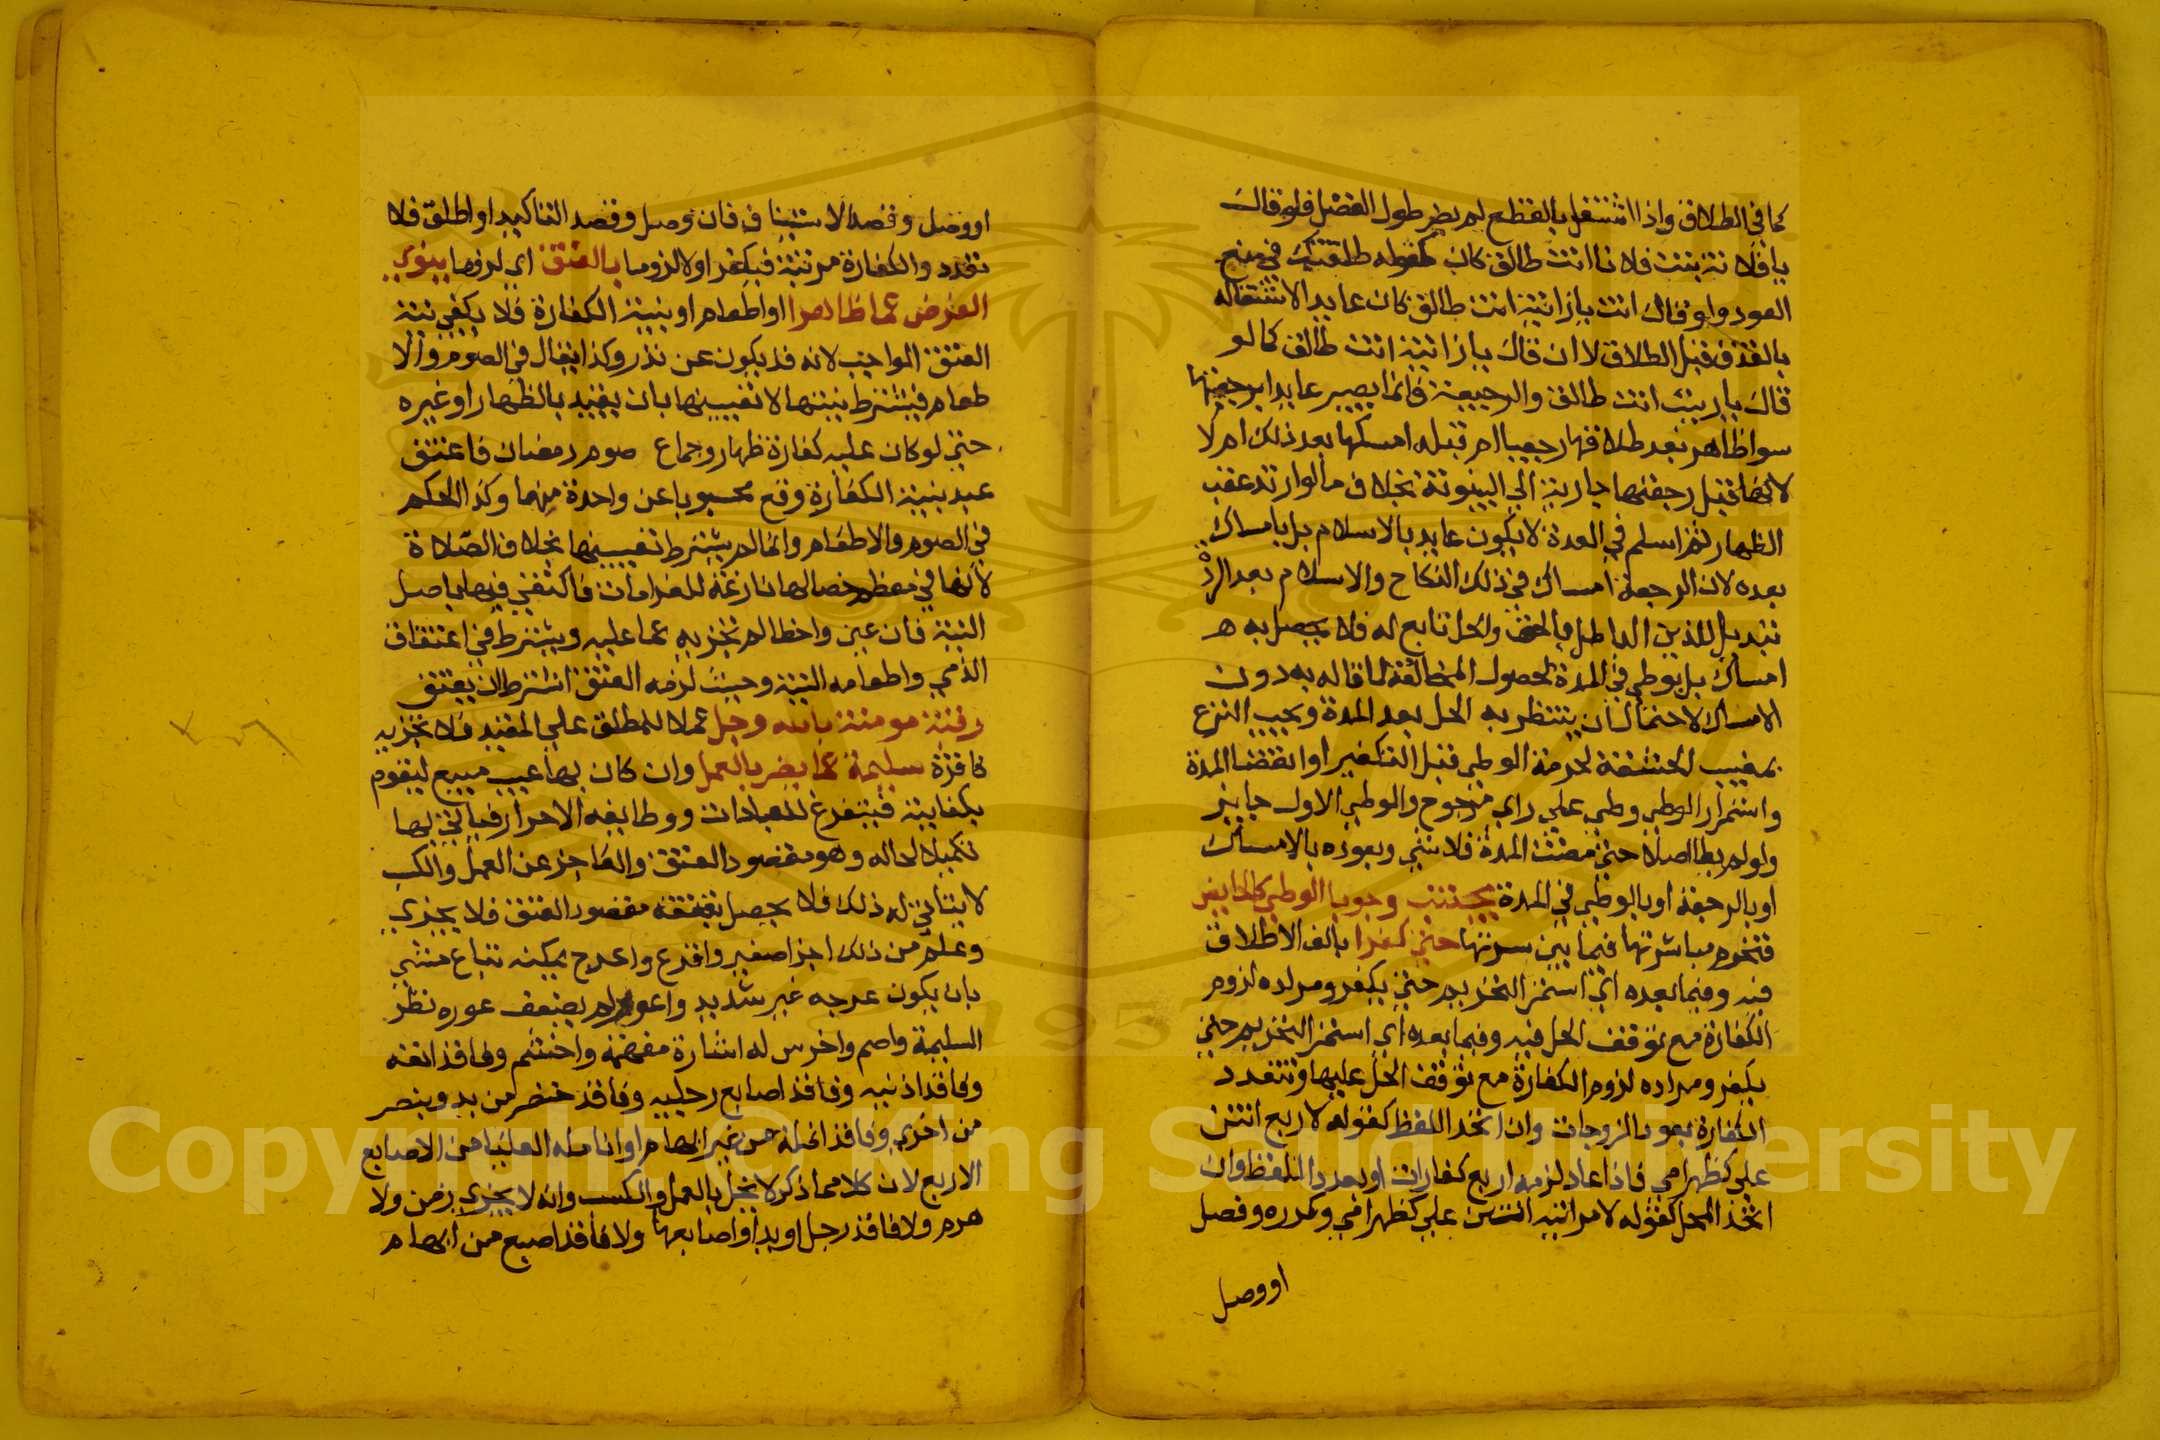 كما في الطلاق واذا اشتغل بالقطع لم يضر طول الفصل فلو قال
يا فلانة بنت فلان انت طالق كان كقوله طلقتك في منع
العود ولو قال انت يا زانية انت طالق كان عايدا لاشتغاله
بالقذف قبل الطلاق لا ان قال يا زانية انت طالق كما لو
قال يا زينب انت طالق والرجيعة فانما يصير عايدا برجعتها
سوا ظاهر بعد طلاقها رجعيا ام قبله امسكها بعد ذلك ام لا
لانها قبل رجعتها جارية الي البينونة بخلاف ما لو ارتد عقب
الظهار ثم اسلم في العدة لا يكون عايدا بالاسلام بل بامساك
بعده لان الرجعة امساك في ذلك النكاح والاسلام بعد الردة
تبديل للدين الباطل بالحق والحل تابع له فلا يحصل به
امساك بل بوطي في المدة لحصول المخالفة لما قاله به دون
الامساك لاحتمال ان ينتظر به الحل بعد المدة ويجب النزع
بمغيب الحشفة لحرمة الوطي قبل التكفير او انقضا المدة
واستمرار الوطي وطي علي راي مرجوح والوطي الاول جايز
ولو لم يطا اصلا حتي مضت المدة فلا شي وبعوده بالامساك
او بالرجعة او بالوطي في المدة يجتنب وجوبا الوطي كالحايض
فتحرم مباشرتها فيما بين سرتها حتي كفرا بالف الاطلاق
فيه وفيما بعده اي استمر التحريم حتي يكفر ومراده لزوم
الكفارة مع توقف الحل فيه وفيما بعده اي استمر التحريم حتي
يكفر ومراده لزوم الكفارة مع توقف الحل عليها وتتعدد
الكفارة بعود الزوجات وان اتحد اللفظ كقوله لاربع انتن
علي كظهر امي فاذا عاد لزمه اربع كفارات او بعدد اللفظ وان
اتحد المحل كقوله لامراته انت علي كظهر امي وكرره وفصل
او وصل
او وصل وقصد الاستيناف فان وصل وقصد التاكيد او اطلق فلا
تعدد والكفارة مرتبة فيكفر اولا لزوما بالعتق اي لرقها ينوي
الفرض عما ظاهرا او اطعام او بنية الكفارة فلا يكفي نية
العتق الواجب لانه قد يكون عن نذر وكذا يقال في الصوم والا
طعام فيشترط نيتها لا تعيينها بان يقيد بالظهار او غيره
حتي لو كان عليه كفارة ظهار وجماع صوم رمضان فاعتق
عبد بنية الكفارة وقع محسوبا عن واحدة منهما وكذا الحكم
في الصوم والاطعام وانما لم يشترط تعيينها بخلاف الصلاة
لانها في معظم خصالها نازعة للغرامات فاكتفي فيها باصل
النية فان عين واخطا لم تجزيه عما عليه ويشترط في اعتقاق
الذمي واطعامه النية وحيث لزمه العتق اشترط ان يعتق
رقبة مومنة بالله وجل عملا للمطلق علي المقيد فلا تجزيه
كافرة سليمة عما يضر بالعمل وان كان بها عيب مبيع ليقوم
بكفايته فيتفرغ للعبادات ووظايفه الاحرار فياتي بها
تكميلا لحاله وهو مقصود العتق والعاجز عن العمل والكسب
لا يتاتي له ذلك فلا يحصل بعتقه مقصود العتق فلا يجزي
وعلم من ذلك اجزا صغير واقرع واعرج يمكنه تباع مشي
بان يكون عرجه غير شديد واعور لم يضعف عوره نظر
السليمة واصم واخرس له اشارة مفهمة واخشم وفاقد انفه
وفاقد اذنيه وفاقد اصابع رجليه وفاقد خنصر من يد وبنصر
من اخري وفاقد انملة من غير ابهام او انامله العليا من الاصابع
الاربع لان كلا مما ذكر لا يخل بالعمل والكسب وانه لا يجزي زمن ولا
هرم ولا فاقد رجل او يد او اصابعها ولا فاقد اصبع من ابهام
Copyright © King Saud University
1957